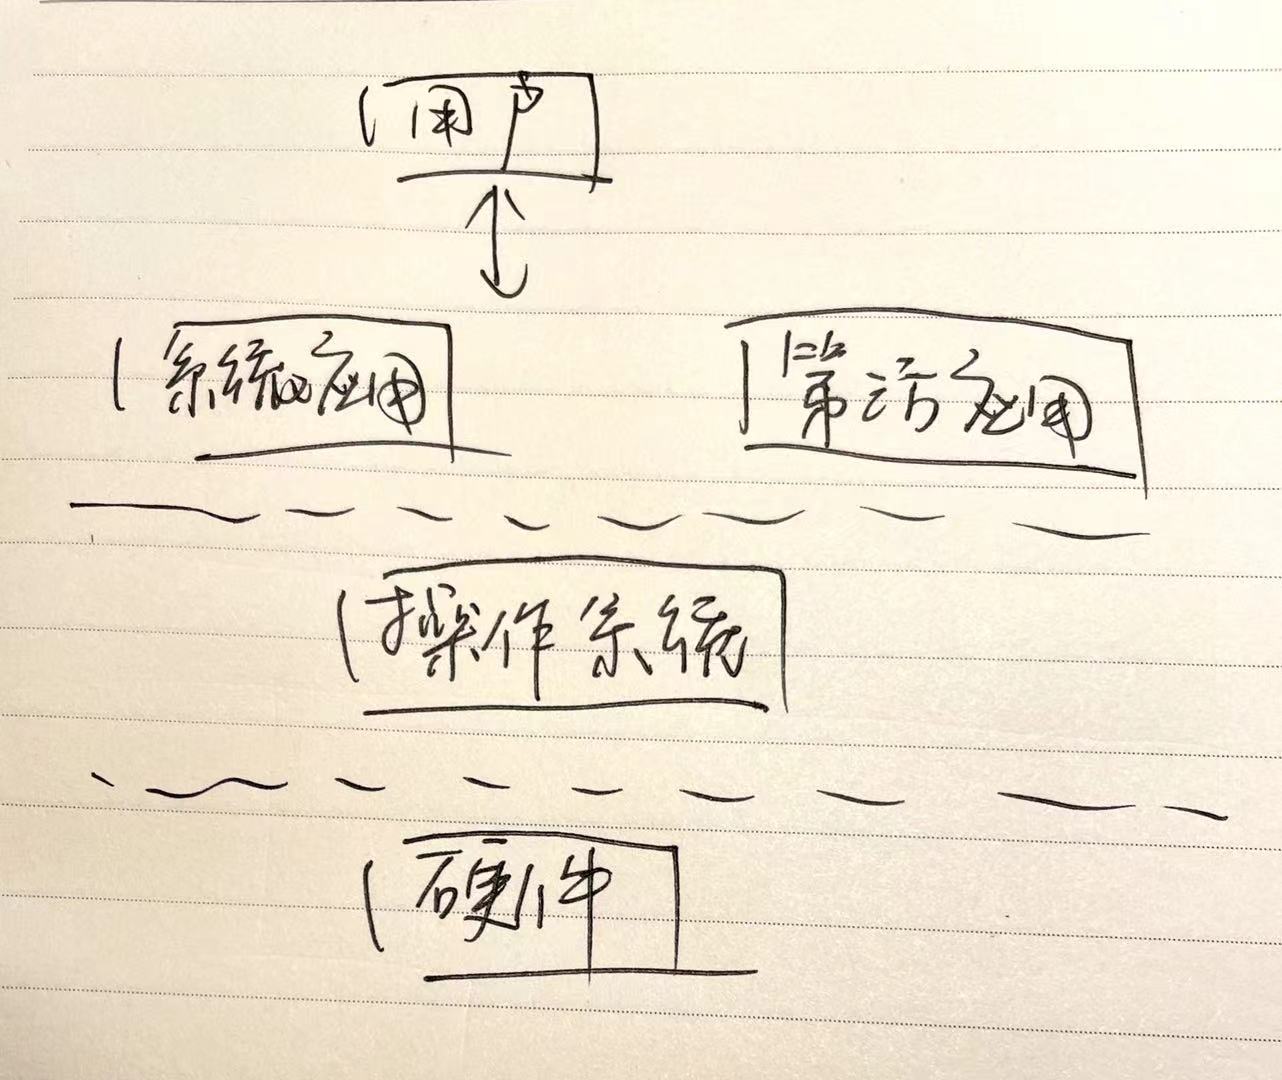 用户
系统应用
第三方应用
操作系统
硬件